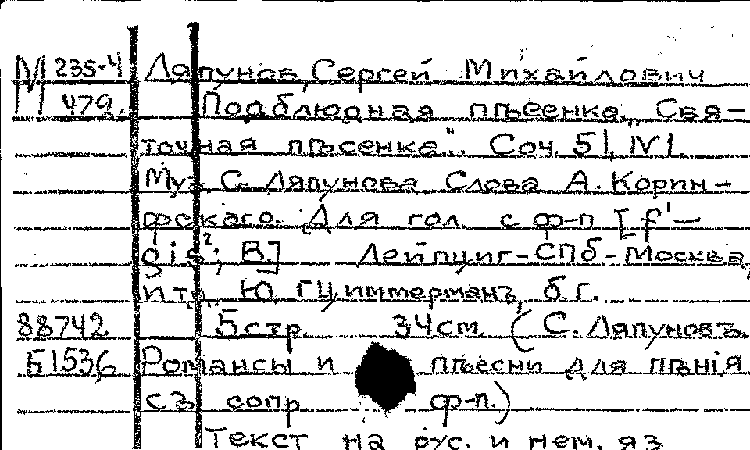 М 235-4 Ляпунов, Сергей Михайлович
479. Подблюдная пѣсенка. „Свя-
точная пѣсенка". Соч. 51, IV.
Муз. С. Ляпунова Слова А. Корин-
фскаго. Для гол. с ф-п [f'-
gis²; B] Лейпциг-СПб-Москва,
и т.д. Ю. Г. Циммерманъ, б.г.
88742 5 стр. 34 см. (С. Ляпуновъ.
Б1536 Романсы и пѣсни для пѣнія
съ сопр. ф-п.)
Текст на рус. и нем. яз